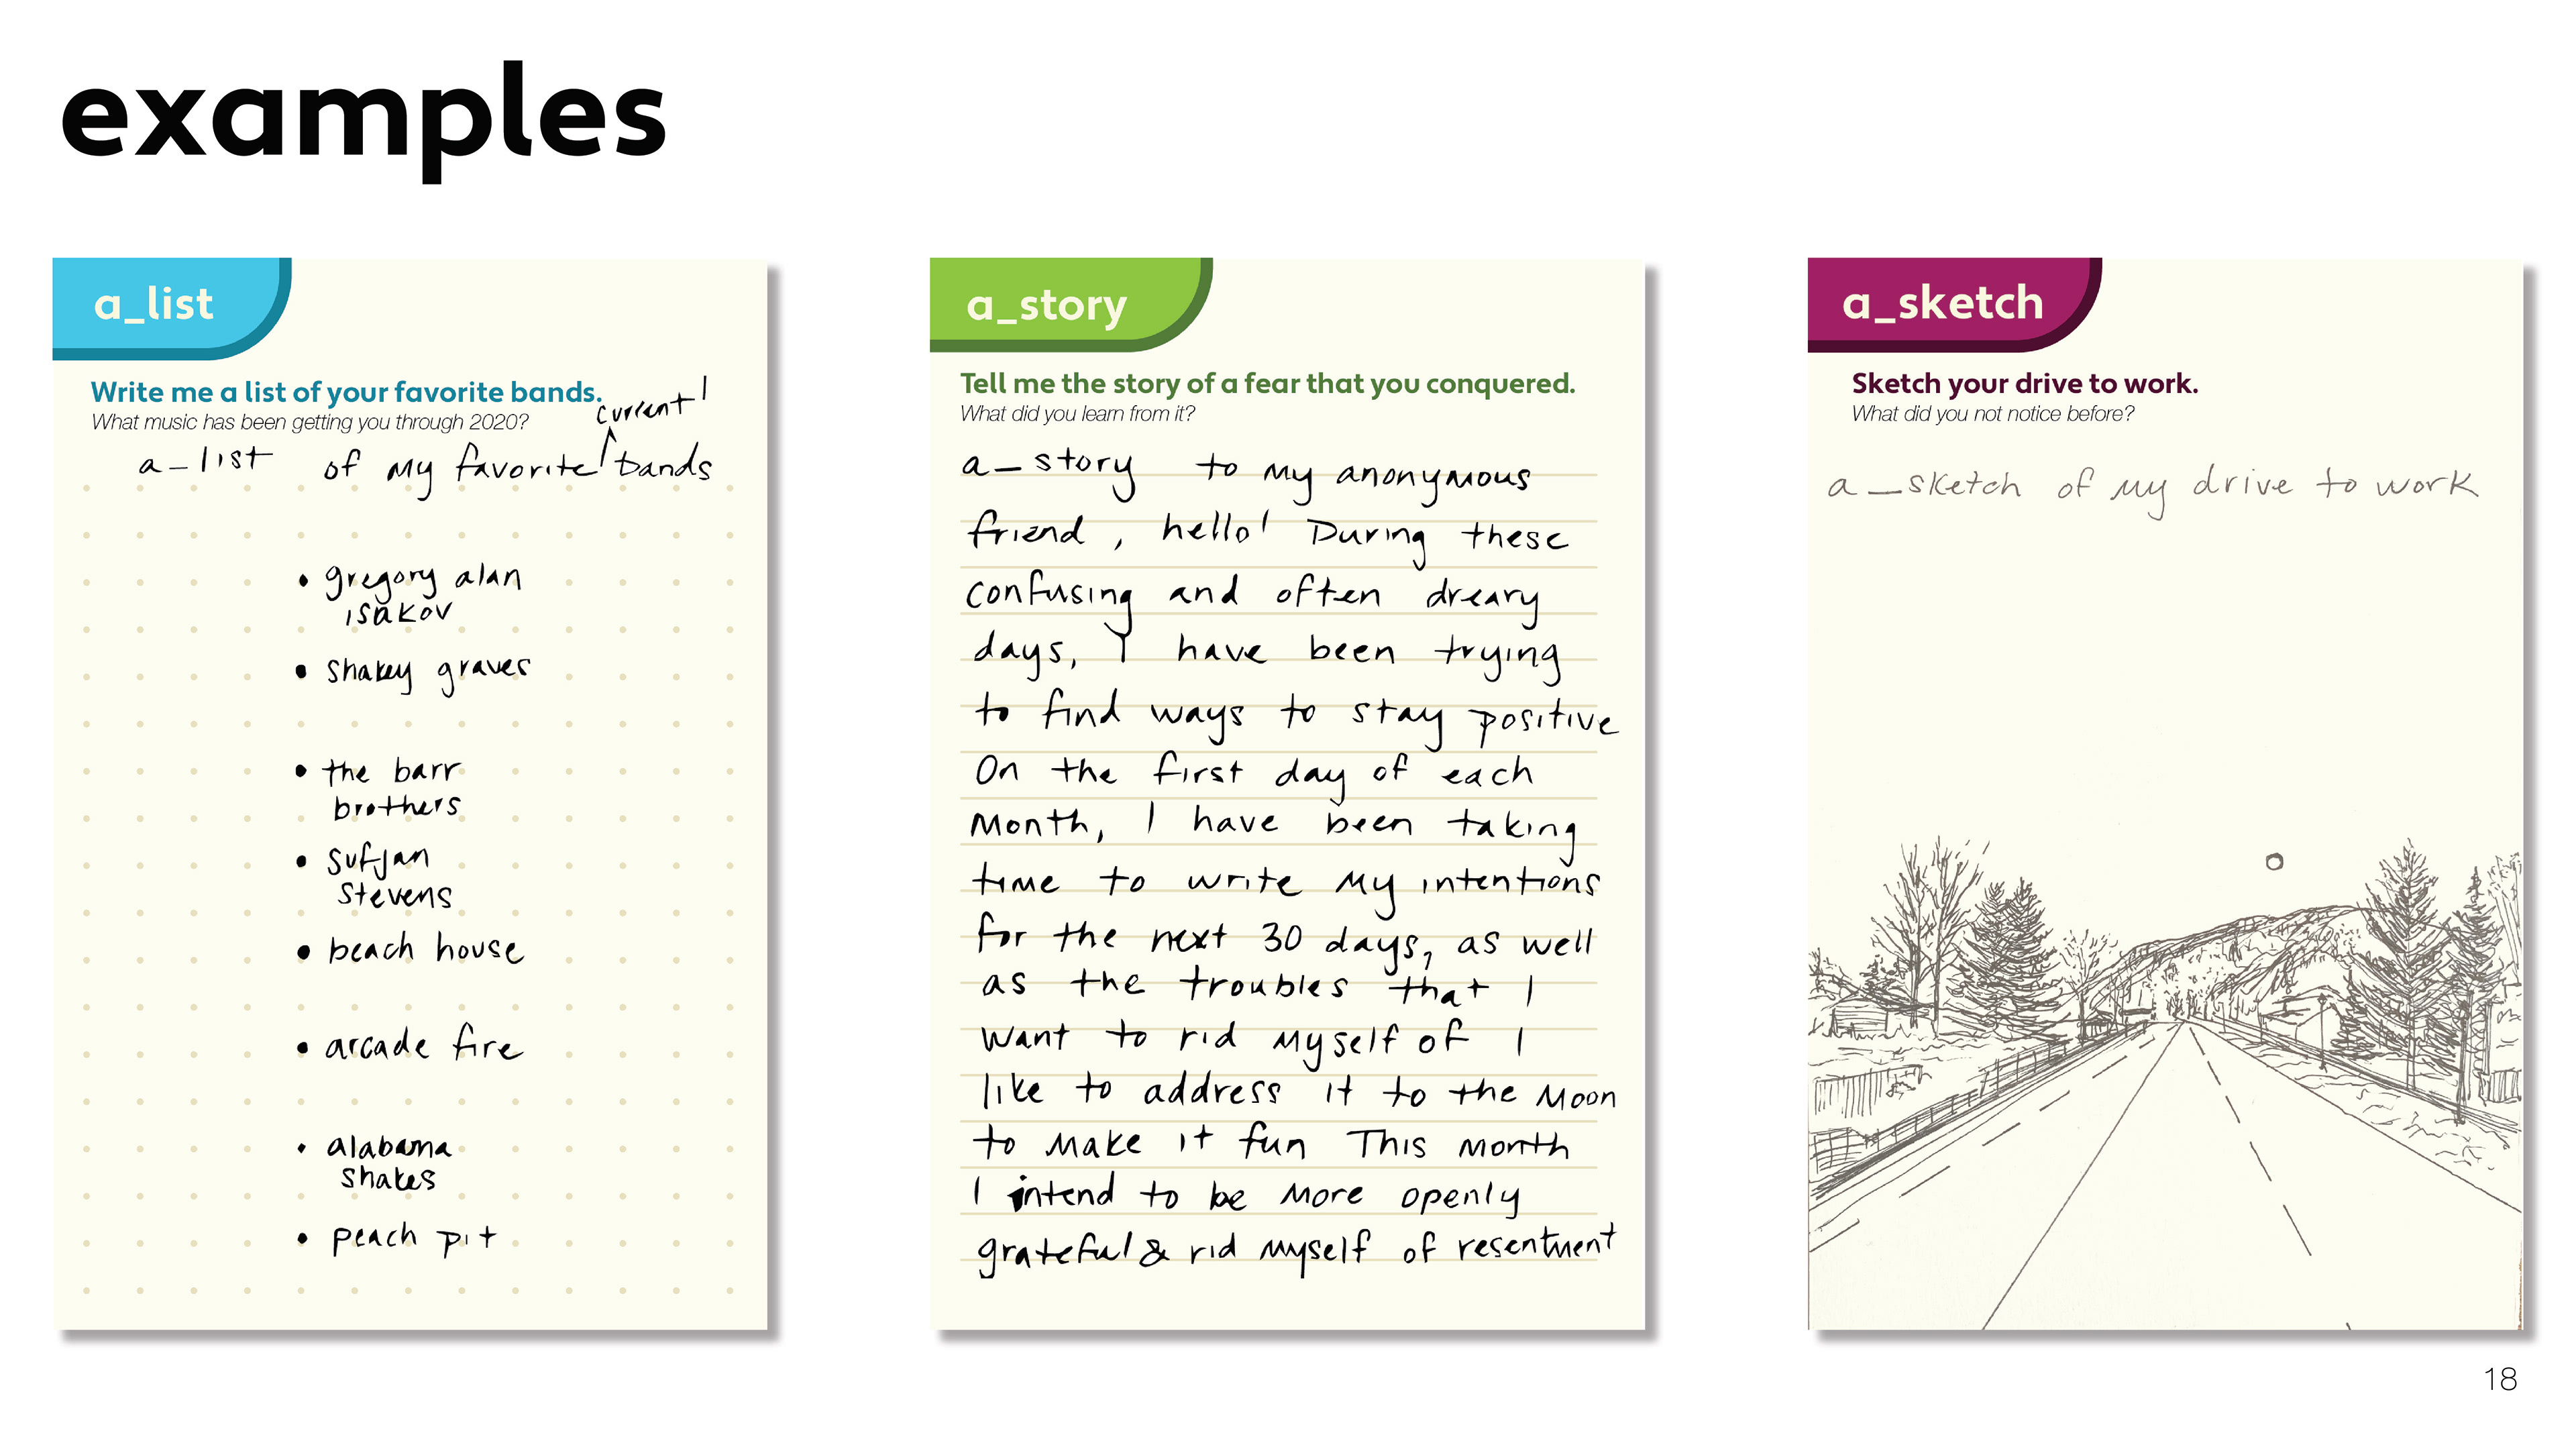 examples
a_list
Write me a list of your favorite bands.
What music has been getting you through 2020?
current!
a_list of my favorite bands
• gregory alan
isakov
• shakey graves
• the barr
brothers
• sufjan
stevens
• beach house
• arcade fire
• alabama
shakes
• peach pit
a_story
Tell me the story of a fear that you conquered.
What did you learn from it?
a_story to my anonymous
friend, hello! During these
confusing and often dreary
days, I have been trying
to find ways to stay positive
On the first day of each
month, I have been taking
time to write my intentions
for the next 30 days, as well
as the troubles that I
want to rid myself of I
like to address it to the moon
to make it fun This month
I intend to be more openly
grateful & rid myself of resentment
a_sketch
Sketch your drive to work.
What did you not notice before?
a_sketch of my drive to work
18